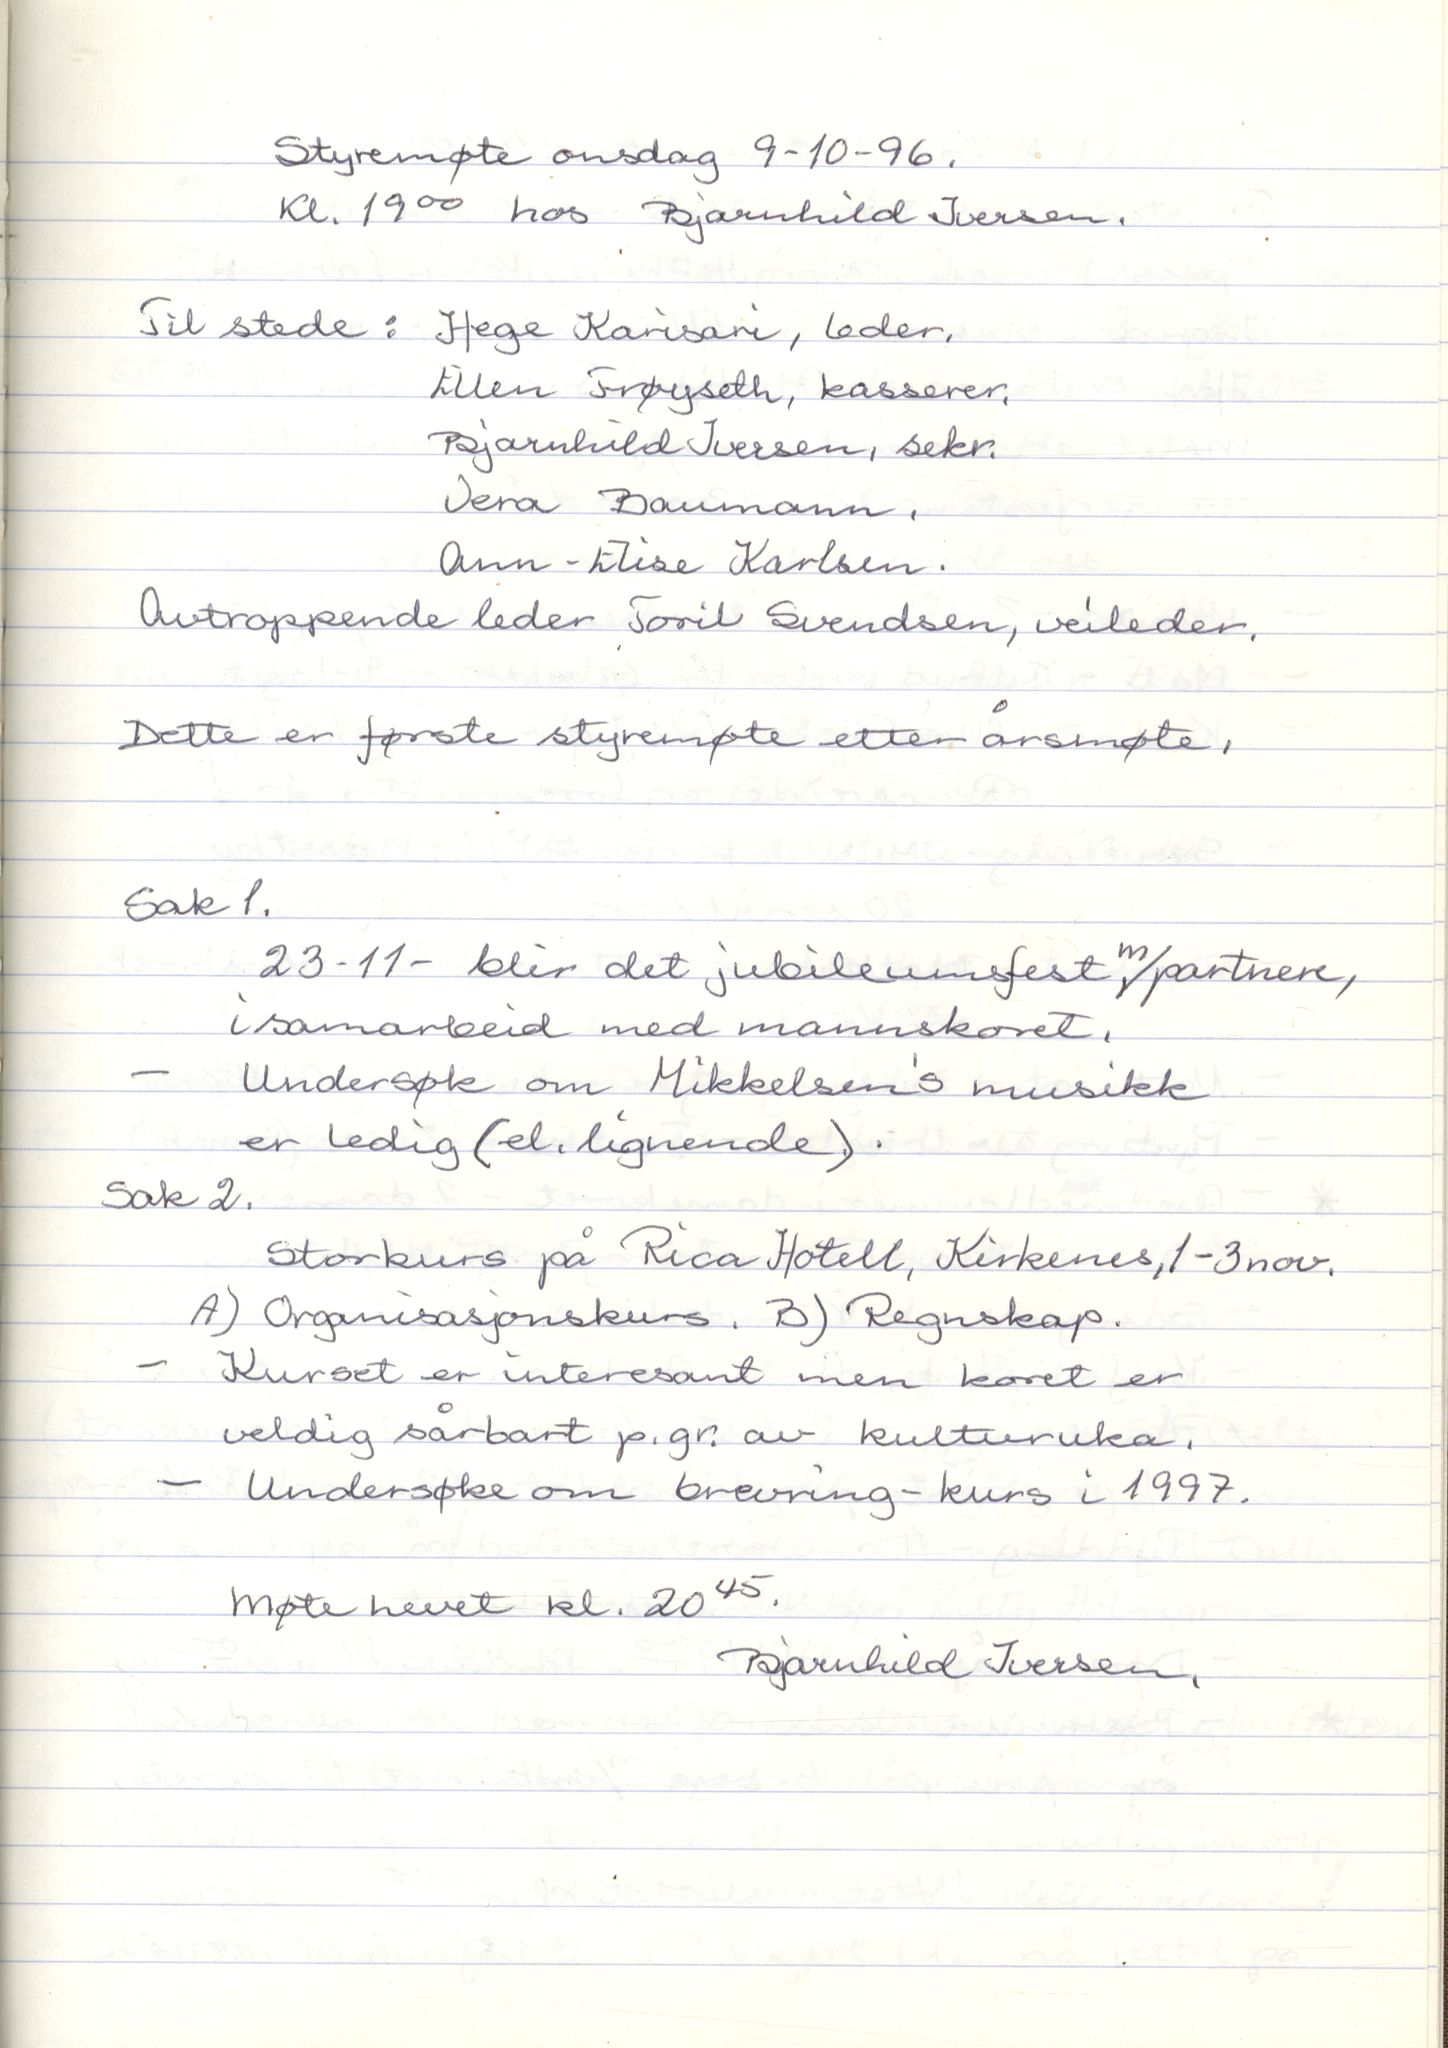 Styremøte onsdag 9-10-96.
Kl. 19⁰⁰ hos Bjarnhild Iversen.
Til stede : Hege Karisari, leder.
Ellen Frøyseth, kasserer.
Bjarnhild Iversen, sekr.
Vera Baumann.
Ann-Elise Karlsen.
Avtroppende leder Toril Svendsen, veileder.
Dette er første styremøte etter årsmøte.
Sak 1.
23-11- blir det jubileumsfest m/partnere,
i samarbeid med mannskoret.
— Undersøk om Mikkelsen's musikk
er ledig (el. lignende).
Sak 2.
Storkurs på Rica Hotell, Kirkenes, 1-3 nov.
A) Organisasjonskurs. B) Regnskap.
– Kurset er interesant men koret er
veldig sårbart p.gr. av kulturuka.
– Undersøke om brevring-kurs i 1997.
Møte hevet kl. 20⁴⁵.
Bjarnhild Iversen.